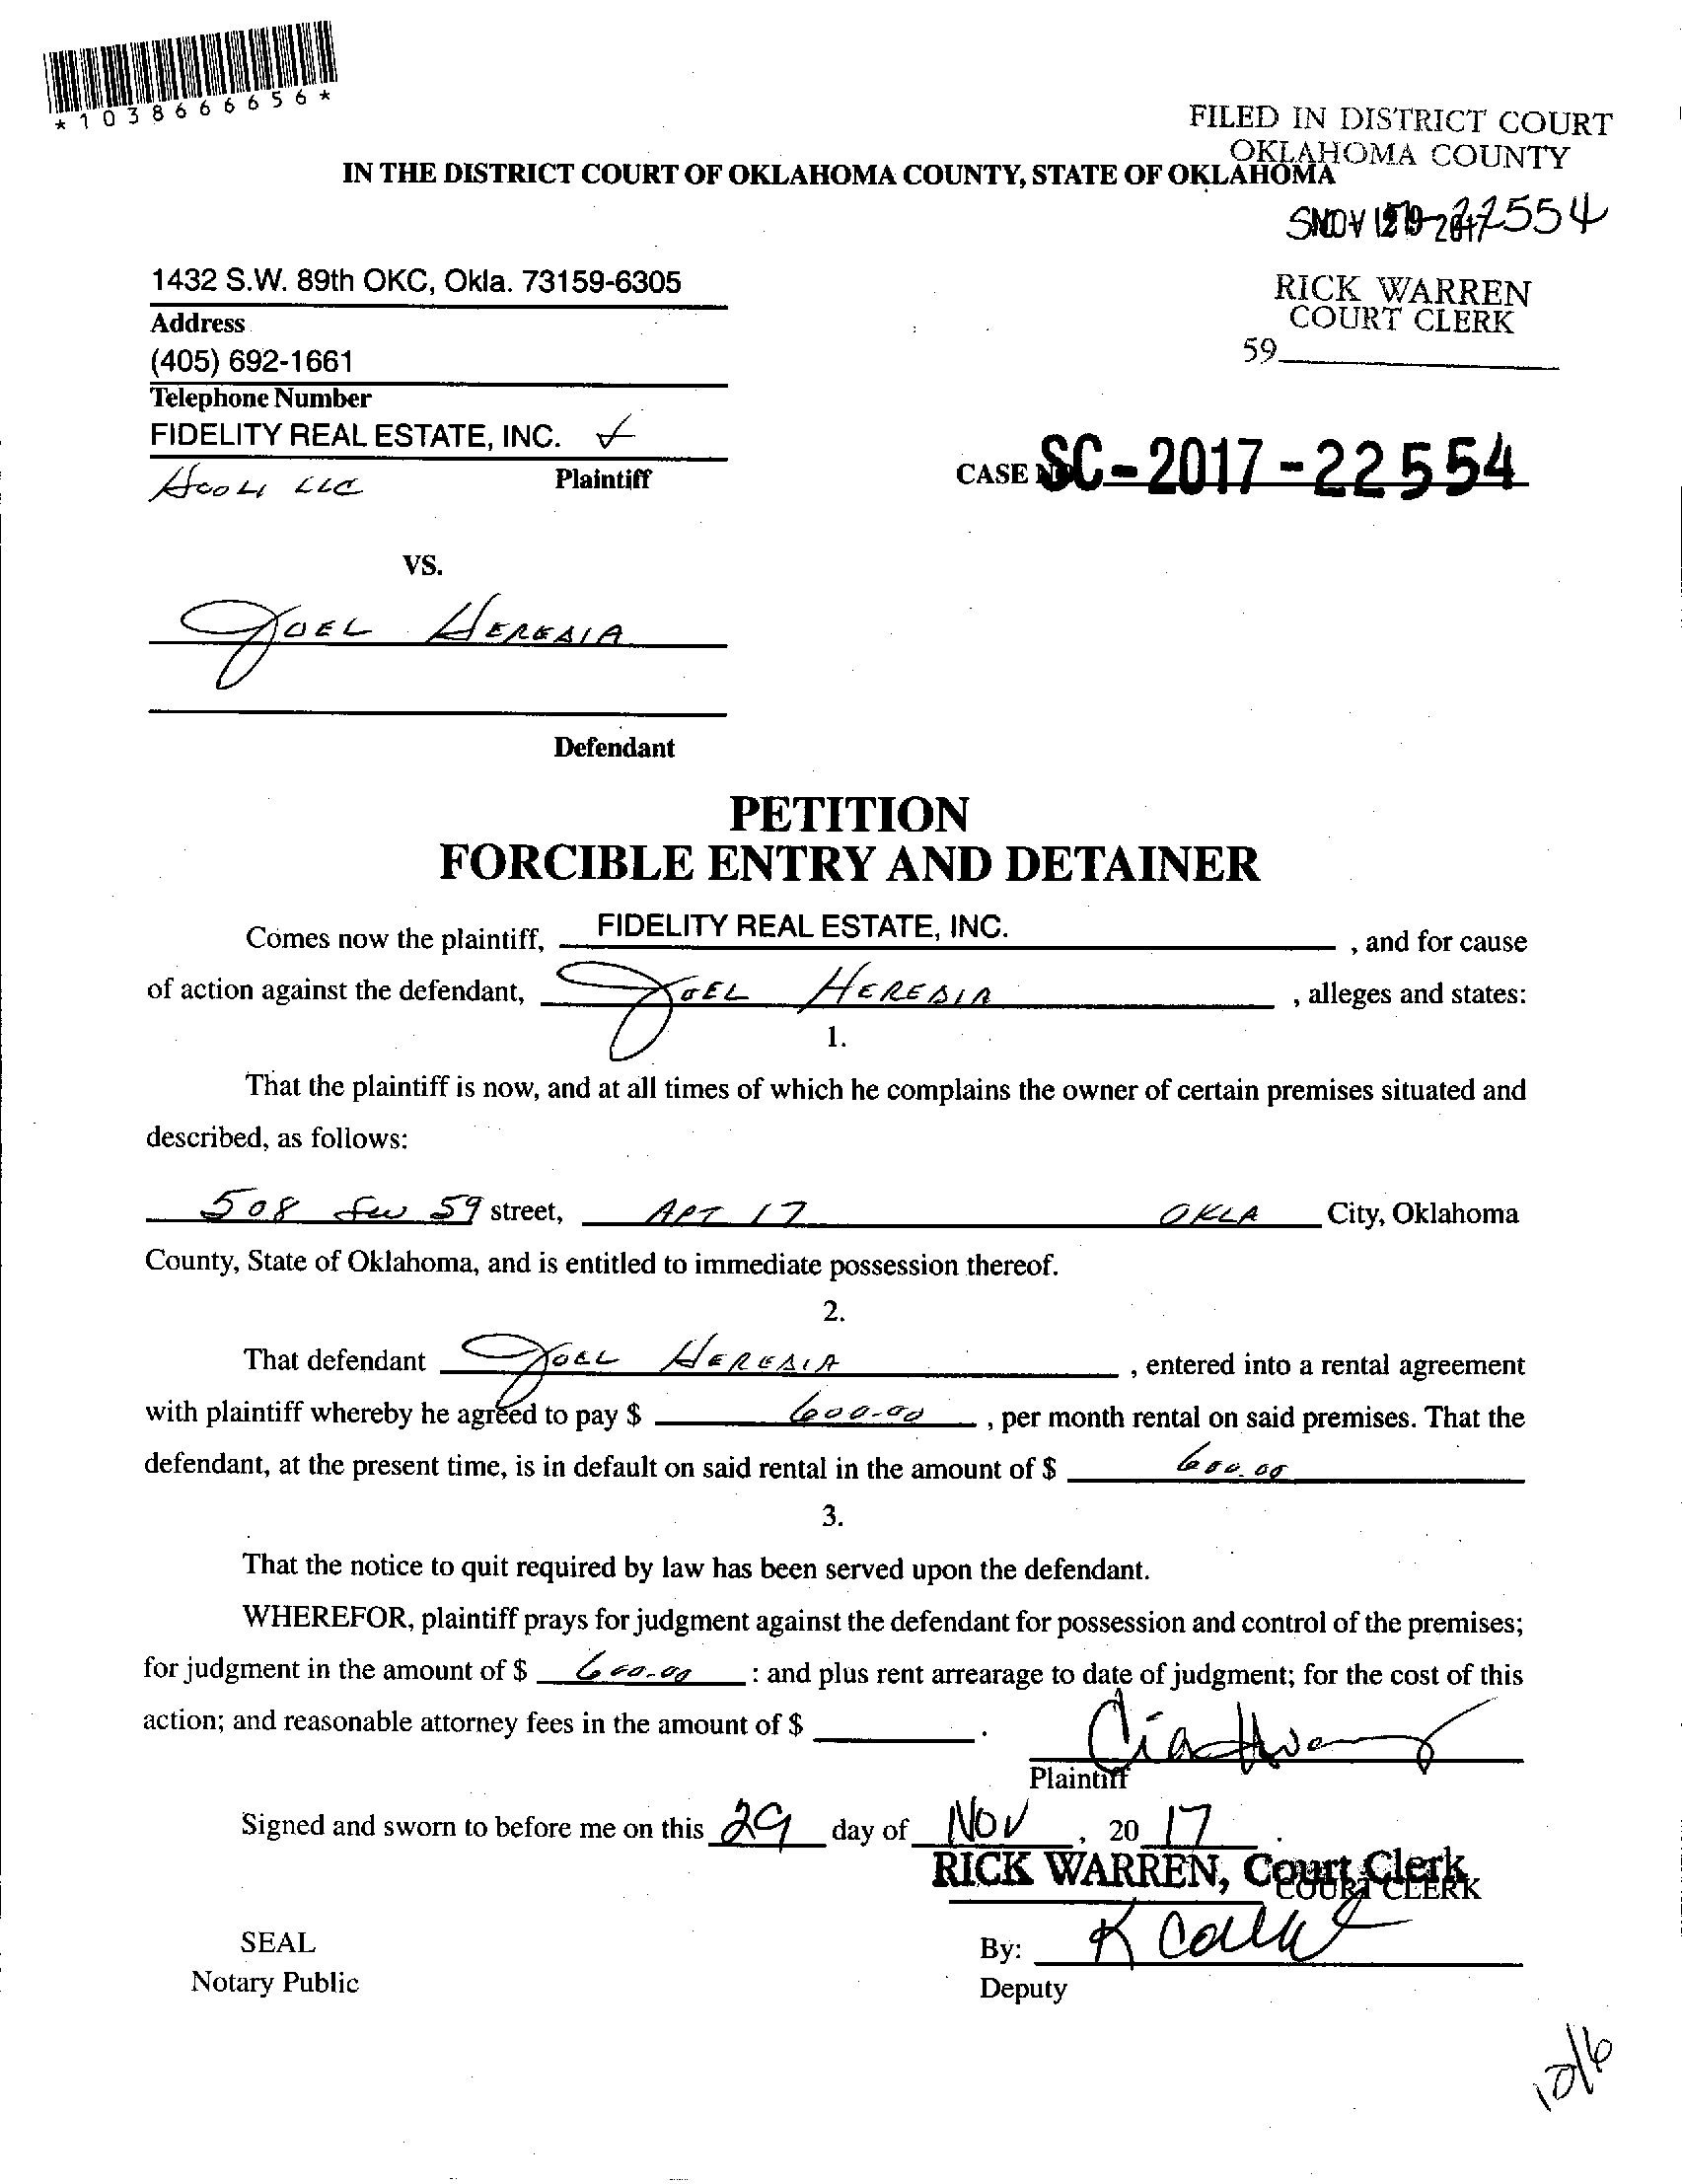 *1038666656*
FILED IN DISTRICT COURT
OKLAHOMA COUNTY
IN THE DISTRICT COURT OF OKLAHOMA COUNTY, STATE OF OKLAHOMA
NOV 29 2017
RICK WARREN
COURT CLERK
59
1432 S.W. 89th OKC, Okla. 73159-6305
Address
(405) 692-1661
Telephone Number
FIDELITY REAL ESTATE, INC.
LLC Plaintiff
CASE NO SC-2017-22554
VS.
JOEL HEREDIA
Defendant
PETITION
FORCIBLE ENTRY AND DETAINER
Comes now the plaintiff, FIDELITY REAL ESTATE, INC. , and for cause
of action against the defendant, JOEL HEREDIA , alleges and states:
1.
That the plaintiff is now, and at all times of which he complains the owner of certain premises situated and
described, as follows:
508 SW 59 street, APT 17 OKLA City, Oklahoma
County, State of Oklahoma, and is entitled to immediate possession thereof.
2.
That defendant JOEL HEREDIA , entered into a rental agreement
with plaintiff whereby he agreed to pay $ 600.00 , per month rental on said premises. That the
defendant, at the present time, is in default on said rental in the amount of $ 600.00
3.
That the notice to quit required by law has been served upon the defendant.
WHEREFOR, plaintiff prays for judgment against the defendant for possession and control of the premises;
for judgment in the amount of $ 600.00 : and plus rent arrearage to date of judgment; for the cost of this
action; and reasonable attorney fees in the amount of $ .
Plaintiff
Signed and sworn to before me on this 29 day of Nov , 20 17 .
RICK WARREN, Court Clerk
COURT CLERK
SEAL
By:
Notary Public
Deputy
12/6